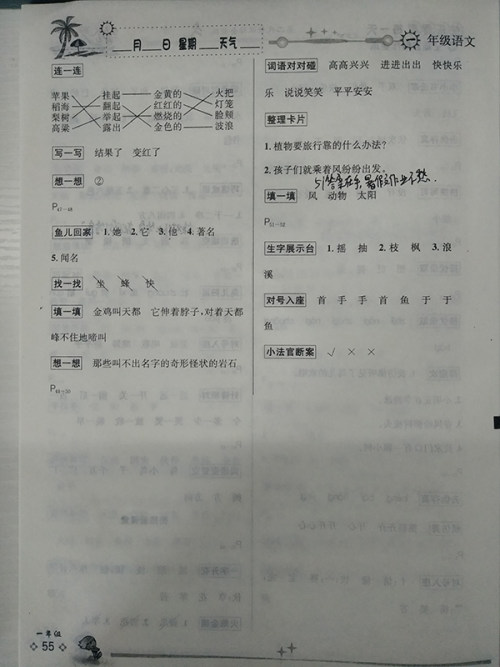 月 日 星期 天气
一年级语文
连一连
苹果 挂起 金黄的 火把
稻海 翻起 红红的 灯笼
梨树 举起 燃烧的 脸颊
高粱 露出 金色的 波浪
写一写 结果了 变红了
想一想 ②
P47—48
鱼儿回家 1.她 2.它 3.他 4.著名
5.闻名
找一找 坐 蜂 快
填一填 金鸡叫天都 它伸着脖子,对着天都
峰不住地啼叫
想一想 那些叫不出名字的奇形怪状的岩石
词语对对碰 高高兴兴 进进出出 快快乐
乐 说说笑笑 平平安安
整理卡片
1.植物要旅行靠的什么办法?
2.孩子们就乘着风纷纷出发。
填一填 风 动物 太阳
生字展示台 1.摇 抽 2.枝 枫 3.浪
溪
对号入座 首 手 手 首 鱼 于 于
鱼
小法官断案 √ × ×
一年级
55